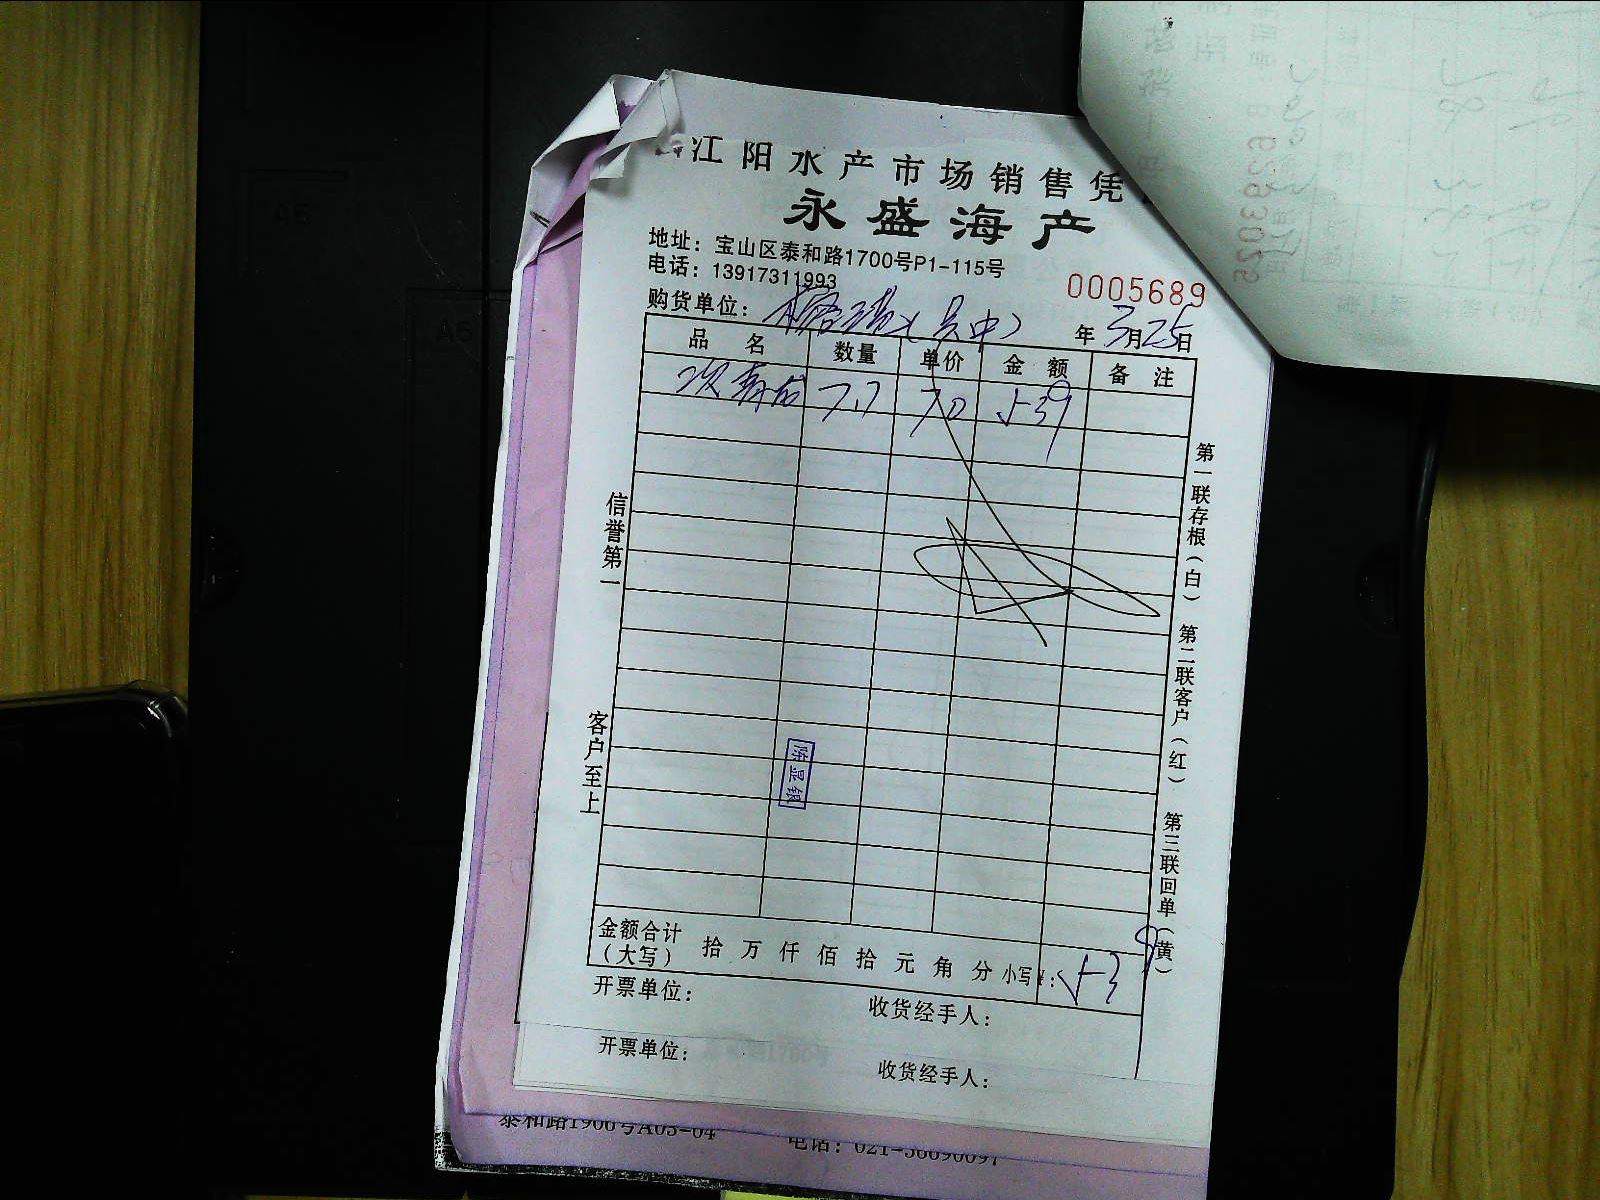 江阳水产市场销售凭
永盛海产
地址：宝山区泰和路1700号P1-115号
电话：13917311993
0005689
购货单位： 年 3月25日
品 名 数量 单价 金 额 备 注
7.7 70 539
信誉第一
客户至上
第一联存根（白） 第二联客户（红） 第三联回单（黄）
陈显银
金额合计（大写） 拾 万 仟 佰 拾 元 角 分 小写¥：539
开票单位： 收货经手人：
开票单位： 收货经手人：
泰和路1906号A05-04 电话：021-56690097
6383025